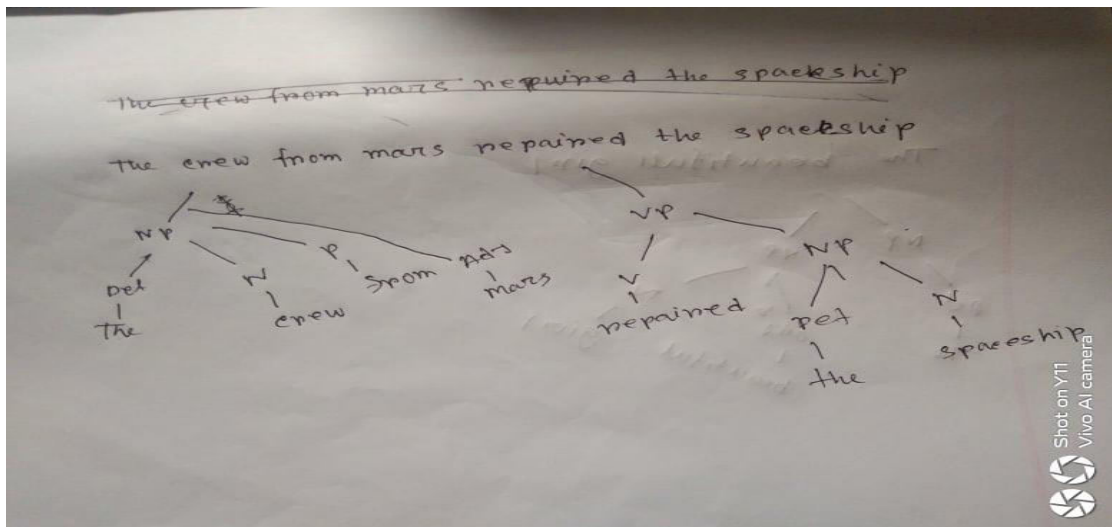 The crew from mars repuired the spaekship
The crew from mars repaired the spaekship
NP VP
Det N P Adj V NP
The crew from mars repaired Det N
the spaceship
Shot on Y11
Vivo AI camera